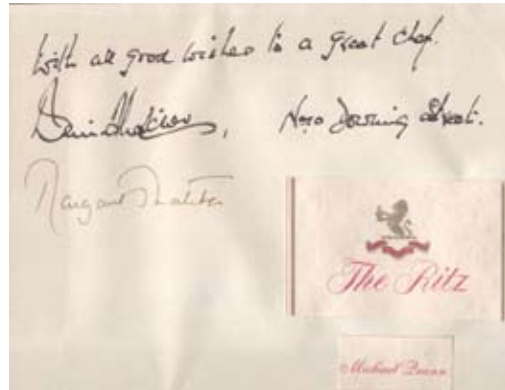 With all good wishes to a great chef.
Denis Thatcher, No 10 Downing Street.
Margaret Thatcher
The Ritz
Michael Quinn